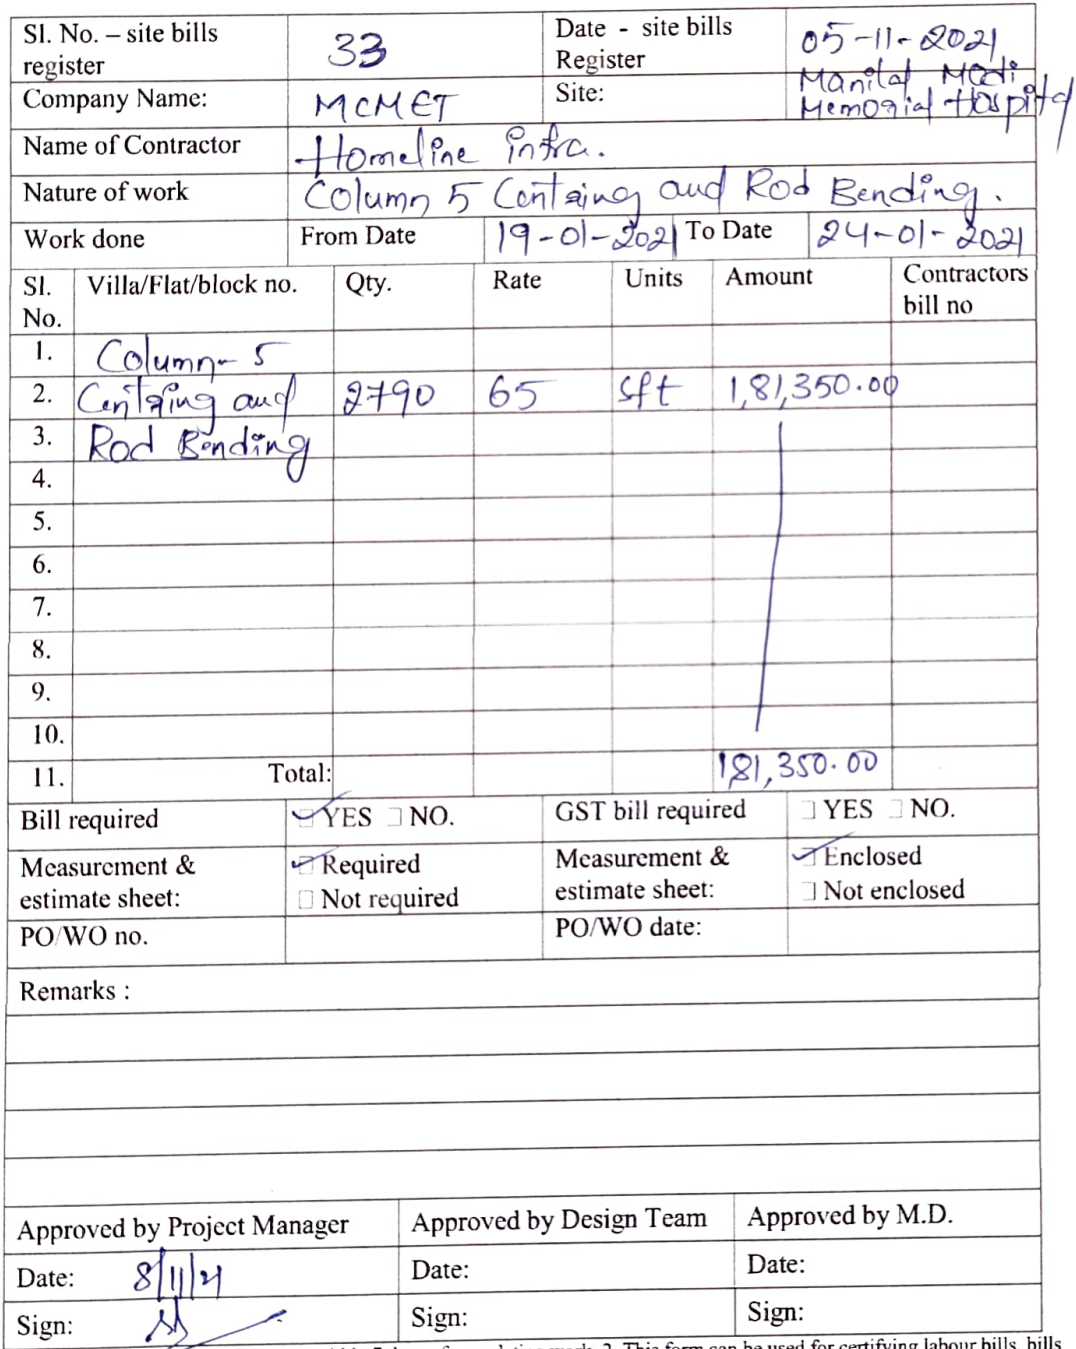 Sl. No. – site bills register 33 Date - site bills Register 05-11-2021
Company Name: MCMET Site: Manilal Modi Memorial Hospital
Name of Contractor Homeline infra.
Nature of work Column 5 Centring and Rod Bending.
Work done From Date 19-01-2021 To Date 24-01-2021
Sl. No. Villa/Flat/block no. Qty. Rate Units Amount Contractors bill no
1. Column-5
2. Centring and 2790 65 sft 1,81,350.00
3. Rod Bending
4.
5.
6.
7.
8.
9.
10.
11. Total: 181,350.00
Bill required YES NO. GST bill required YES NO.
Measurement & estimate sheet: Required Not required Measurement & estimate sheet: Enclosed Not enclosed
PO/WO no. PO/WO date:
Remarks :
Approved by Project Manager Approved by Design Team Approved by M.D.
Date: 8/11/21 Date: Date:
Sign: Sign: Sign:
This form can be used for certifying labour bills, bills